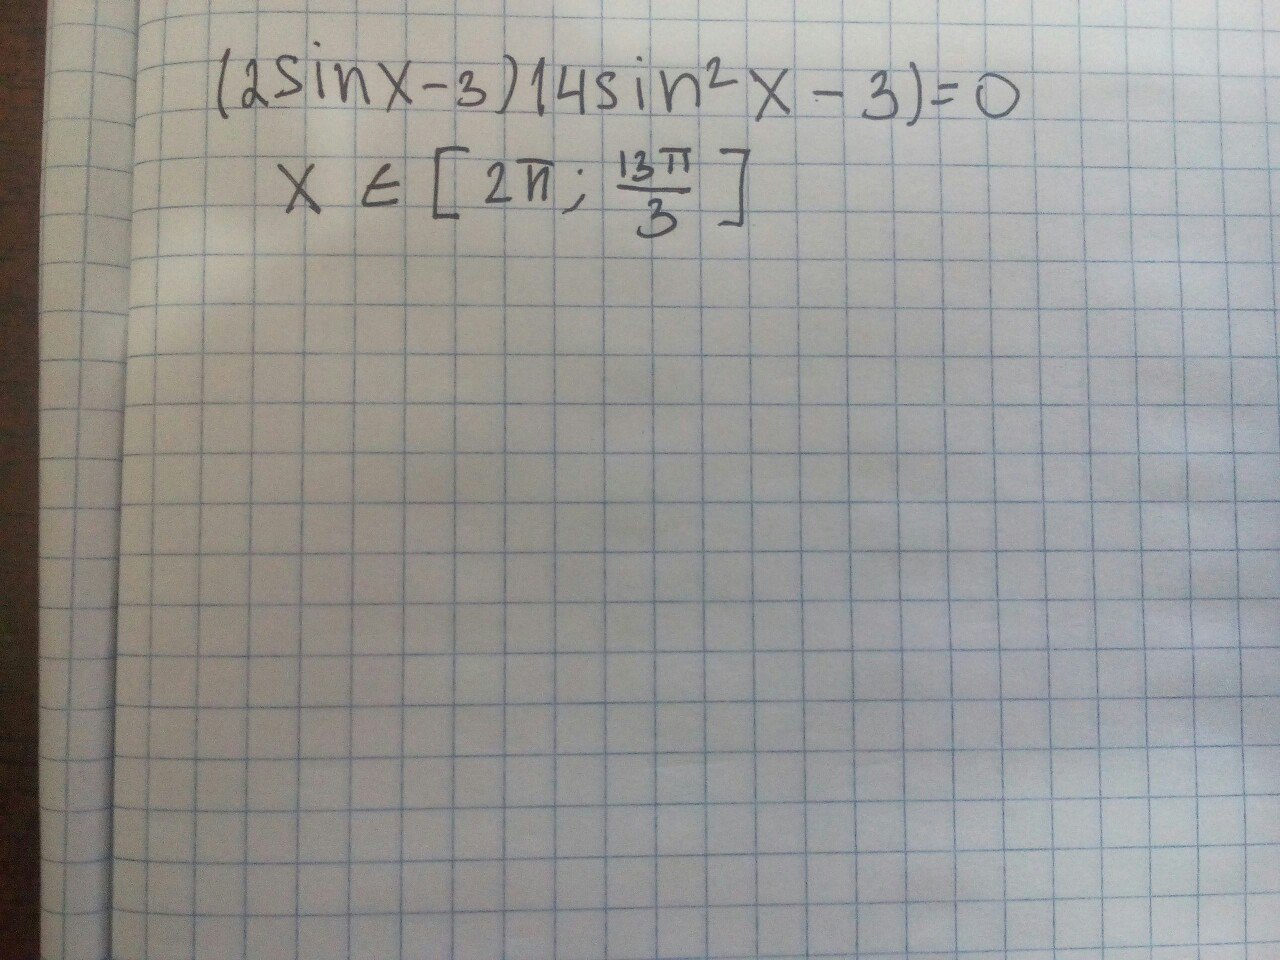 (2sinx-3)(4sin²x-3)=0
x ∈ [2π; 13π/3]